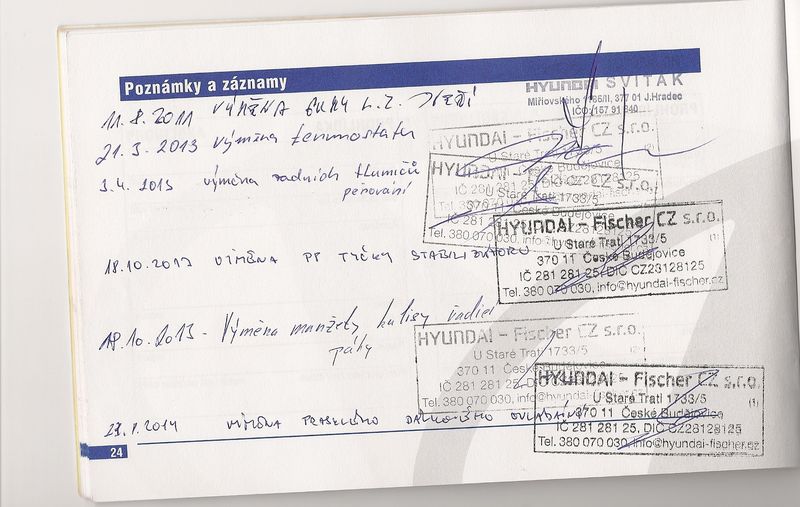 Poznámky a záznamy
HYUNDAI SVITÁK
Miřiovského 1186/II, 377 01 J.Hradec
IČO: 157 91 840
11.8.2011 VÝMĚNA
21.3.2013 výměna termostatu
HYUNDAI – Fischer CZ s.r.o.
U Staré Trati
České Budějovice
3.4.2013 výměna zadních tlumičů
pérování
HYUNDAI
U Staré Trati 1733/5
370 11 České Budějovice
IČ 281 281 25
Tel. 380 070 030, info@
18.10.2013 VÝMĚNA PP TYČKY STABILIZÁTORU
HYUNDAI – Fischer CZ s.r.o.
U Staré Trati 1733/5 (1)
370 11 České Budějovice
IČ 281 281 25, DIČ CZ28128125
Tel. 380 070 030, info@hyundai-fischer.cz
18.10.2013 - Výměna manžety kulisy řadící
páky
HYUNDAI – Fischer CZ s.r.o.
U Staré Trati 1733/5
370 11 České
IČ 281 281 25,
Tel. 380 070 030, info@hyundai
2014 VÝMĚNA PRASKLÉHO DÁLKOVÉHO OVLÁDÁNÍ
HYUNDAI – Fischer CZ s.r.o.
U Staré Trati 1733/5 (1)
370 11 České Budějovice
IČ 281 281 25, DIČ CZ28128125
Tel. 380 070 030, info@hyundai-fischer.cz
24